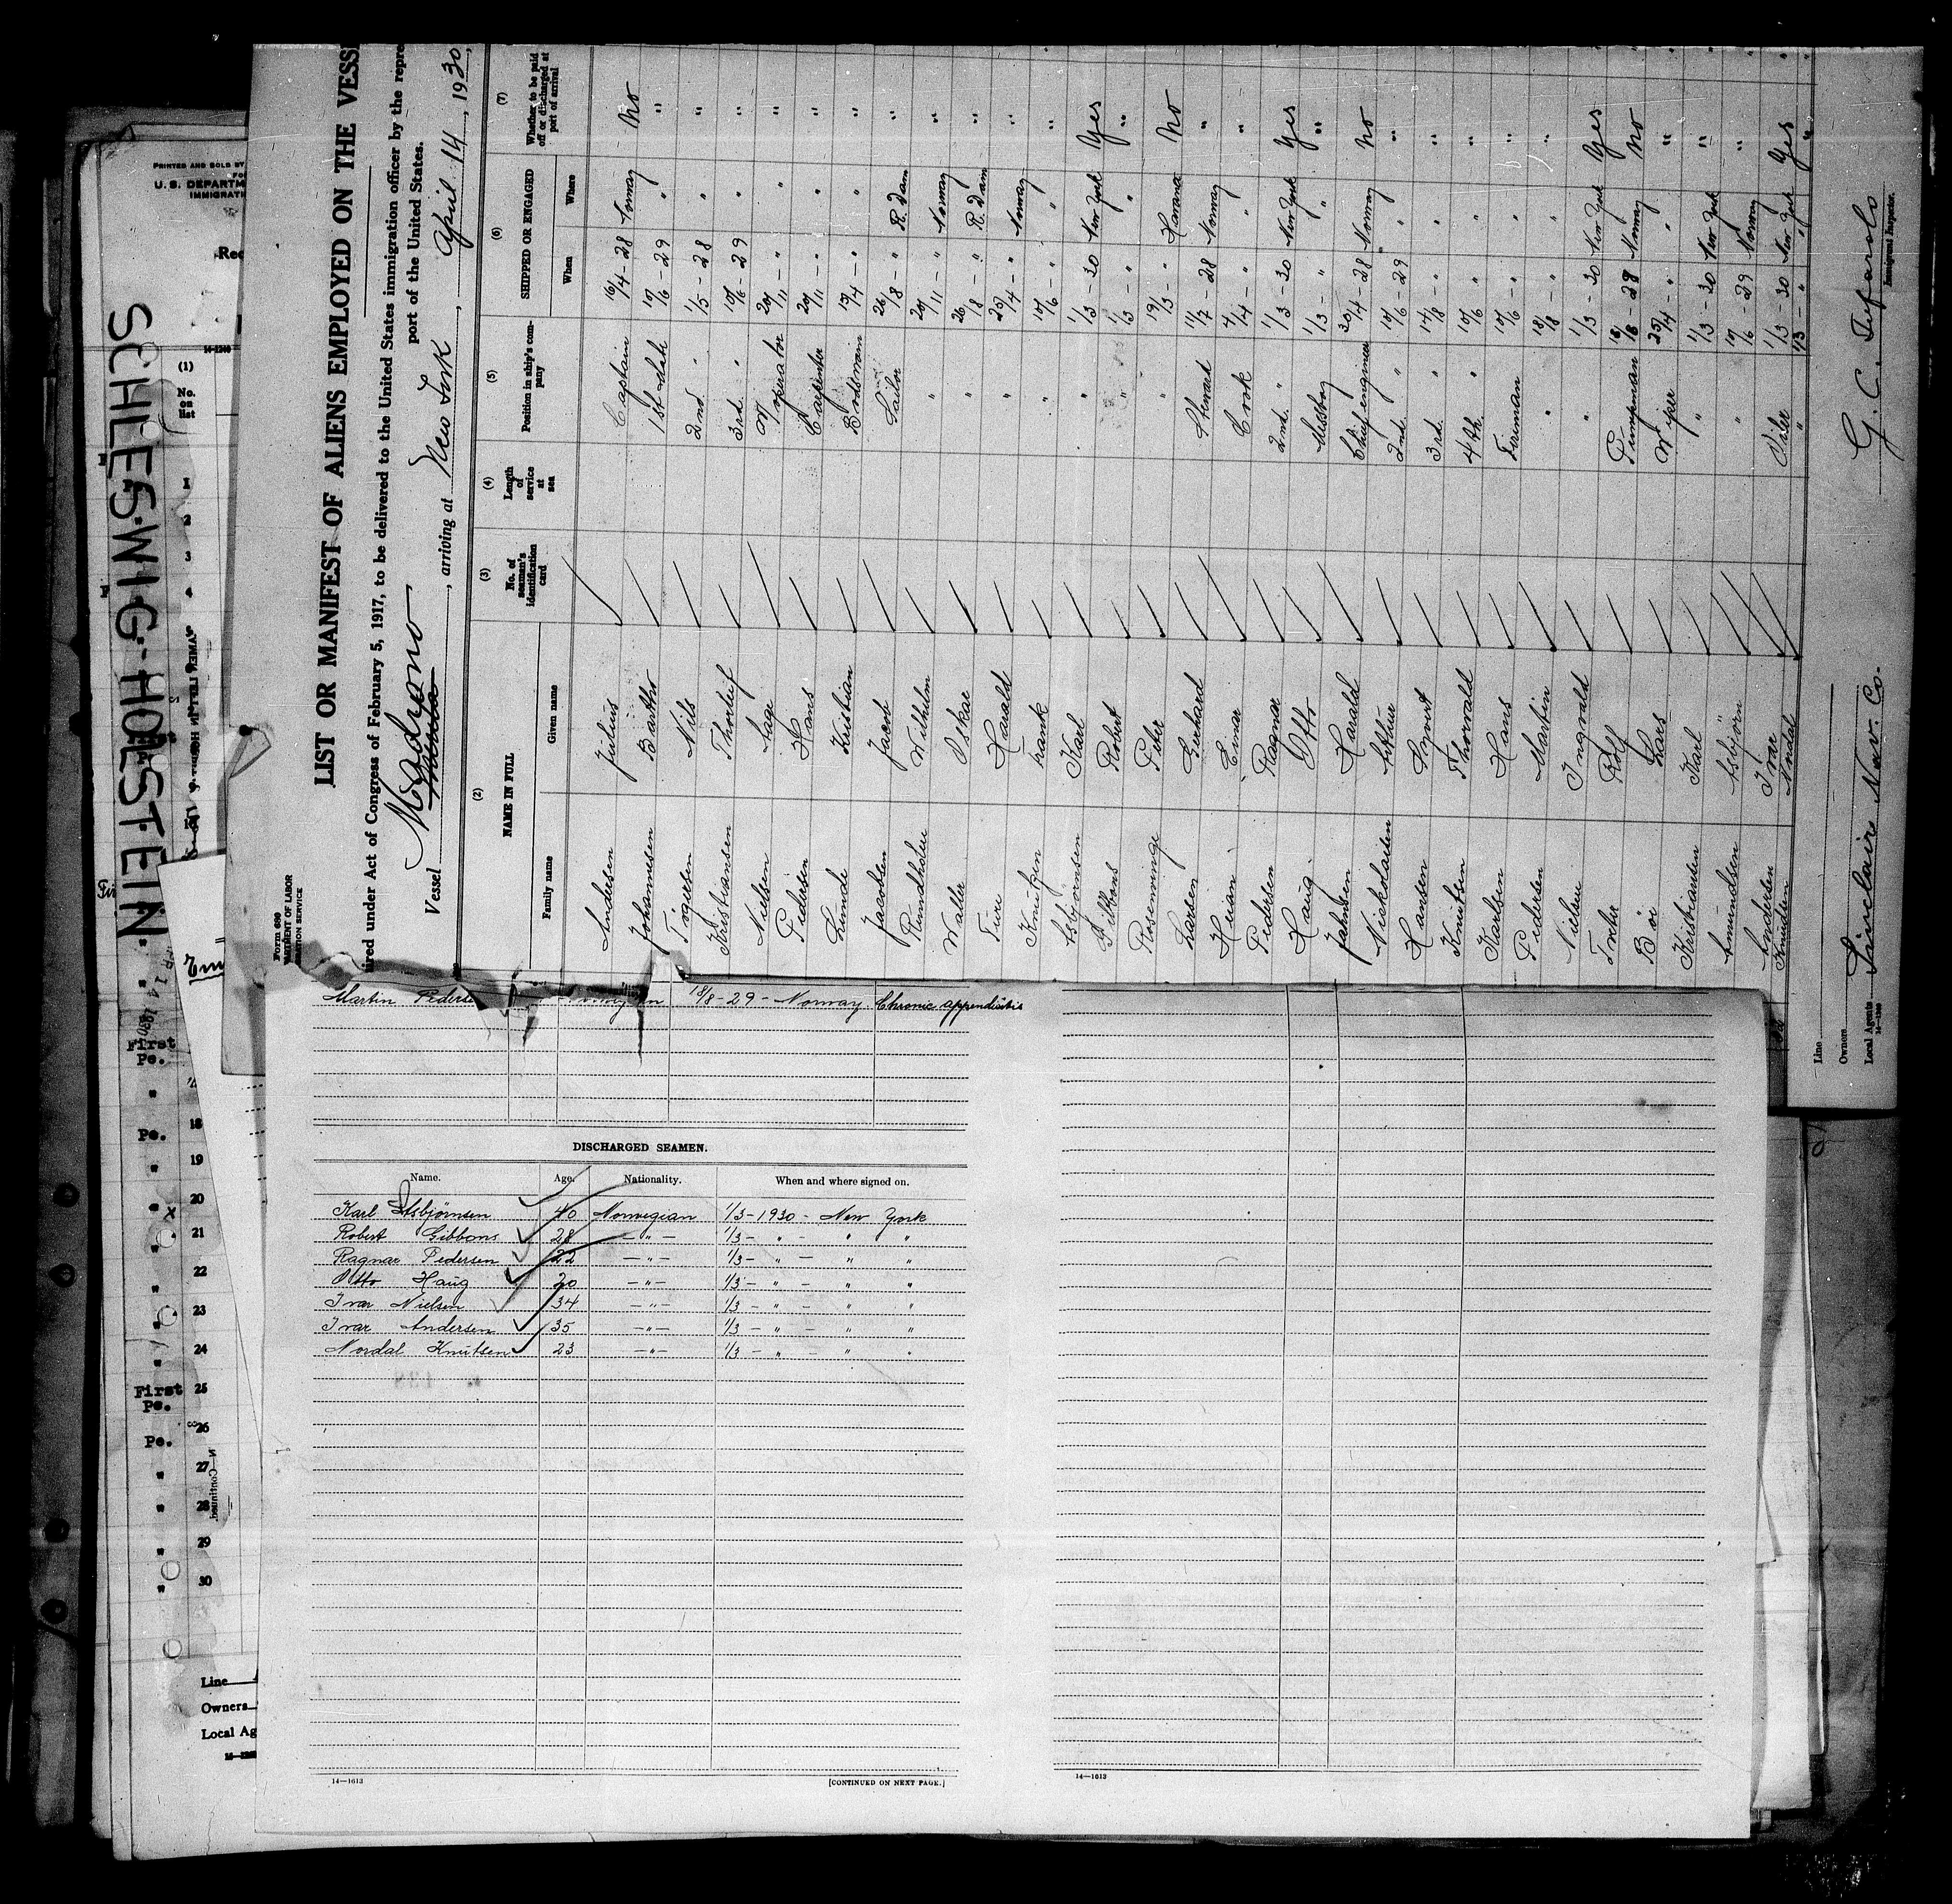 SCHLESWIG-HOLSTEIN
PRINTED AND SOLD BY
U.S. DEPARTM
IMMIGRATI
Rec
14-1240
(1)
No.
on
list
1
2
3
4
First
Pe.
"
Pe.
18
"
19
"
20
"
21
"
22
"
23
"
24
First
Pe.
25
26
Pe.
27
"
28
"
29
"
30
"
Line
Owners
Local Ag
Form 689
ARTMENT OF LABOR
GRATION SERVICE
LIST OR MANIFEST OF ALIENS EMPLOYED ON THE VESSE
ired under Act of Congress of February 5, 1917, to be delivered to the United States immigration officer by the repre
port of the United States.
Vessel Modjono, arriving at New York, April 14, 1930,
(2) (3) (4) (5) (6) (7)
NAME IN FULL
Family name Given name
No. of seaman's identification card
Length of service at sea
Position in ship's company
SHIPPED OR ENGAGED
When Where
Whether to be paid off or discharged at port of arrival
Andersen Julius Captain 16/4-28 Norway No
Johannesen Barttro 1st Mate 10/6-29 " "
Nils 2nd " 1/5-28 " "
Kristiansen Thorleif 3rd. " 10/6-29 " "
Nielsen Aage W operator 20/11-" " "
Pedersen Hans Carpenter 20/11-" " "
Lunde Kristian Boatswain 13/4-" " "
Jacobsen Jacob Sailor 26/8-" R.Dam "
Rundholm Wilhelm " 20/11-" Norway "
Waller Oskar " 26/8-" R.Dam "
Harald " 25/4-" Norway "
Knutsen Frank " 10/6-" " "
Asbjørnsen Karl " 1/3-30 New York Yes
Gibbons Robert " 1/3-" " "
Rosenvinge Peter " 19/3-" Havana No
Larsen Gerhard Stewart 11/7-28 Norway "
Heian Einar Cook 4/4-" " "
Pedersen Ragnar 2nd. " 1/3-30 New York Yes
Haug Otto Messboy 1/3-" " "
Johnsen Harald Chief engineer 30/4-28 Norway No
Nickolaisen Arthur 2nd. " 10/6-29 " "
Hansen Knut 3rd. " 14/8-" " "
Knutsen Thorvald 4th. " 10/6-" " "
Karlsen Hans Fireman 10/6-" " "
Pedersen Martin " 18/8-" " "
Nielsen Ingvald " 1/3-30 New York Yes
Rolf Pumpman 16/8-28 Norway No
Bøi Lars Wiper 25/4-" " "
Kristiansen Karl " 1/3-30 New York "
Amundsen Asbjörn " 10/6-29 Norway "
Andersen Ivar Oiler 1/3-30 New York Yes
Knudsen Nordal " 1/3-" " "
Line
Owners
Local Agents Sinclair Nav. Co.
Immigrant Inspector.
Martin Pederse 18/8-29- Norway. Chronic appendicitis
DISCHARGED SEAMEN.
Name. Age. Nationality. When and where signed on.
Karl Asbjørnsen 40 Norwegian 1/3-1930- New York
Robert Gibbons 28 -"- 1/3- " - " "
Ragnar Pedersen 22 -"- 1/3- " - " "
Otto Haug 20 -"- 1/3- " - " "
Ivar Nielsen 34 -"- 1/3 - " - " "
Ivar Andersen 35 -"- 1/3 - " - " "
Nordal Knutsen 23 -"- 1/3 - " - " "
14—1613 [CONTINUED ON NEXT PAGE.] 14—1613